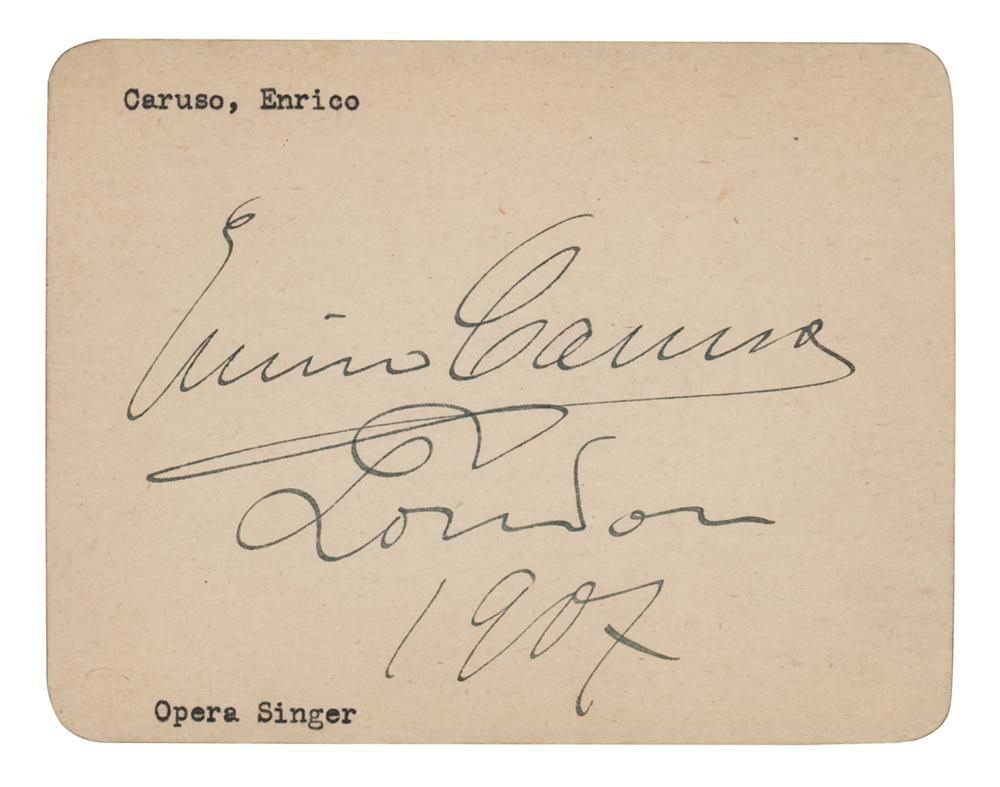 Caruso, Enrico
Enrico Caruso
London
1907
Opera Singer